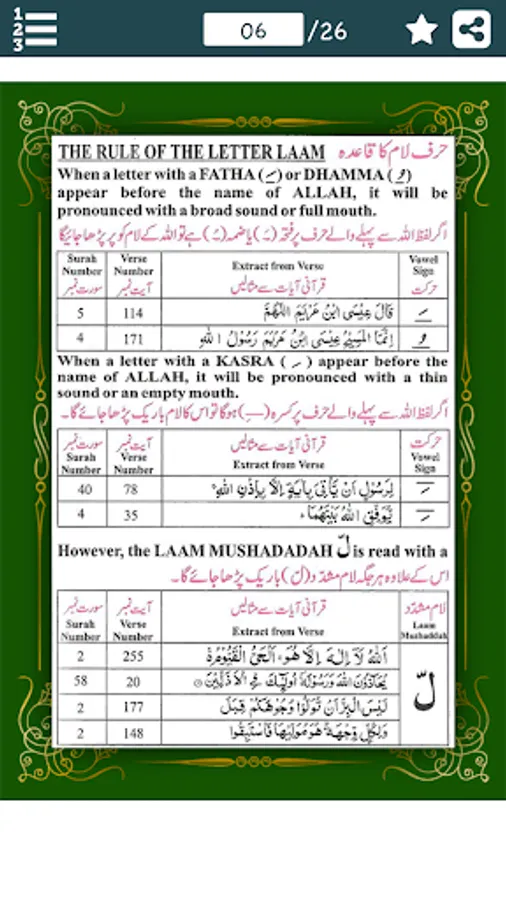 1 2 3
06 /26
THE RULE OF THE LETTER LAAM حرف لام کا قاعدہ
When a letter with a FATHA (ـَ) or DHAMMA (ـُ)
appear before the name of ALLAH, it will be
pronounced with a broad sound or full mouth.
اگر لفظ اللہ سے پہلے والے حرف پر فتحہ (ـَ) یا ضمہ (ـُ) ہے تو اللہ کے لام کو پر پڑھا جائیگا
Surah Number Verse Number Extract from Verse Vowel Sign
سورت نمبر آیت نمبر قرآنی آیات سے مثالیں حرکت
5 114 قَالَ عِيْسَى ابْنُ مَرْيَمَ اللّٰهُمَّ ـَ
4 171 اِنَّمَا الْمَسِيْحُ عِيْسَى ابْنُ مَرْيَمَ رَسُوْلُ اللّٰهِ ـُ
When a letter with a KASRA (ـِ) appear before the
name of ALLAH, it will be pronounced with a thin
sound or an empty mouth.
اگر لفظ اللہ سے پہلے والے حرف پر کسرہ (ـِ) ہوگا تو اس کا لام باریک پڑھا جائے گا۔
سورت نمبر آیت نمبر قرآنی آیات سے مثالیں حرکت
Surah Number Verse Number Extract from Verse Vowel Sign
40 78 لِرَسُوْلٍ اَنْ يَّأْتِيَ بِاٰيَةٍ اِلَّا بِاِذْنِ اللّٰهِ ـِ
4 35 يُّوَفِّقِ اللّٰهُ بَيْنَهُمَا ـِ
However, the LAAM MUSHADADAH لّ is read with a
اس کے علاوہ ہر جگہ لام مشدّد (لّ) باریک پڑھا جائے گا۔
سورت نمبر آیت نمبر قرآنی آیات سے مثالیں لام مشدّد
Surah Number Verse Number Extract from Verse Laam Mushaddah
2 255 اَللّٰهُ لَآ اِلٰهَ اِلَّا هُوَ اَلْحَيُّ الْقَيُّوْمُ
58 20 يُحَآدُّوْنَ اللّٰهَ وَرَسُوْلَهٗ اُولٰٓئِكَ فِي الْاَذَلِّيْنَ
لّ
2 177 لَيْسَ الْبِرَّ اَنْ تُوَلُّوْا وُجُوْهَكُمْ قِبَلَ
2 148 وَلِكُلٍّ وِّجْهَةٌ هُوَ مُوَلِّيْهَا فَاسْتَبِقُوا